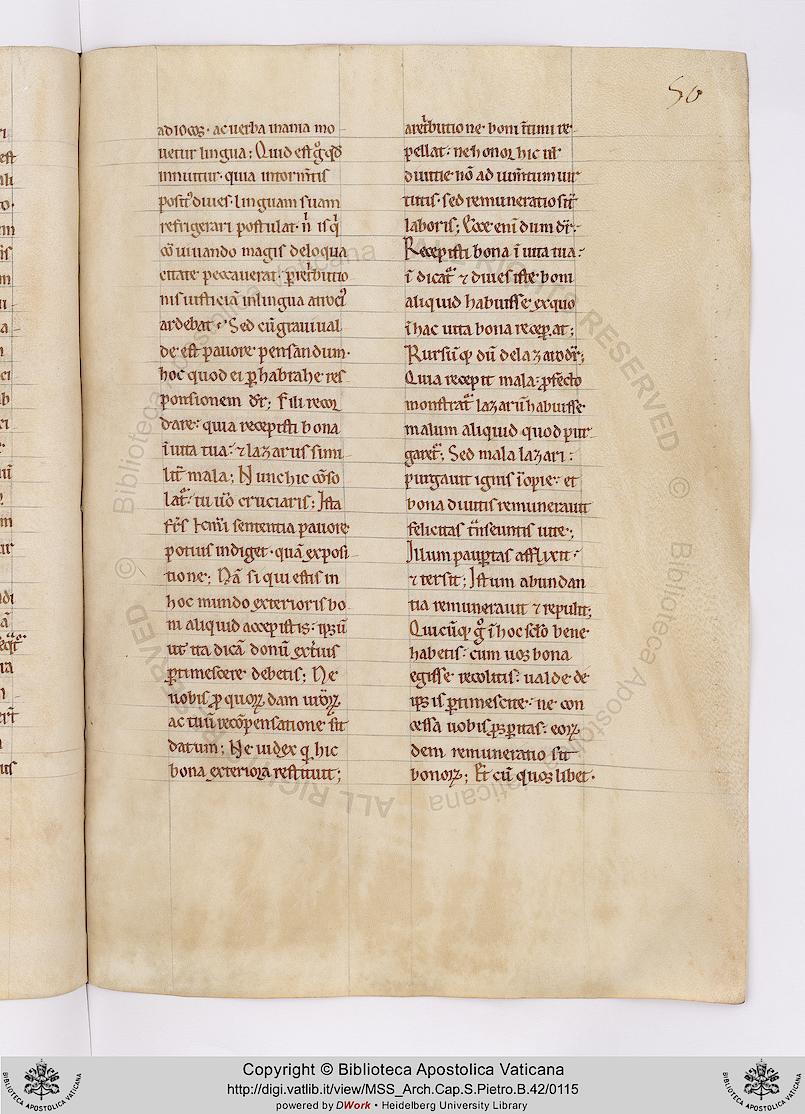 50
ad iocos · ac uerba inania mo
uetur lingua; Quid est g̊ qd̛
innuitur · quia in torm̅tis
posit᷒ diues · linguam suam
refrigerari postulat · n̅ is q̇
co̅uiuando magis de loqua
citate peccauerat · p̲ retˡbutio
nis iusticia̅ in lingua atroci᷒
ardebat · Sed cu̅ graui ual
de est pauore pensandum ·
hoc quod ei p̲ habrahe res
ponsionem dr̅; Fili recor
dare · quia recepisti bona
i̅ uita tua · ⁊ lazarus simi
lit̅ mala; Nunc hic co̅so
lat᷑ · tu u̅o cruciaris; Ista
fr̅s k̅mi sententia pauore
potius indiget · qua̅ exposi
tione; Na̅ si qui estis in
hoc mundo exterioris bo
ni aliquid accepistis · ipsu̅
ut ita dica̅ donu̅ ext̅ius
p̲timescere debetis; Ne
uobis p̲ quorꝝdam ur̅oꝝ
actuu̅ reco̅pensatione sit
datum; Ne iudex q̇ hic
bona exteriora restituit;
a retˡbutione boni i̅timi re
pellat · ne honor hic uˡ
diuitie no̅ ad ium̅tum uir
tutis · sed remuneratio sit
laboris; Ecce eni̅ dum dr̅ ·
Recepisti bona i̅ uita tua ·
i̅dicat᷑ ⁊ diues iste boni
aliquid habuisse ex quo
i̅ hac uita bona recep̲at;
Rursu̅q; du̅ de lazaro dr̅;
Quia recepit mala · p̲fecto
monstrat᷑ lazaru̅ habuisse
malum aliquid quod pur
garet᷑; Sed mala lazari ·
purgauit ignis i̅opie · et
bona diuitis remunerauit
felicitas t̅nseuntis uite;
Illum paup̲tas afflixit ·
⁊ tersit; Istum abundan
tia remunerauit ⁊ repulit;
Quicu̅q; g̊ i̅ hoc sc̅lo bene
habetis · cum uos bona
egisse recolitis · ualde de
ipsis p̲timescite · ne con
cessa uobis p̲sp̲itas · eorꝝ
dem remuneratio sit
bonorꝝ; Et cu̅ quos libet ·
Copyright © Biblioteca Apostolica Vaticana
http://digi.vatlib.it/view/MSS_Arch.Cap.S.Pietro.B.42/0115
powered by DWork • Heidelberg University Library